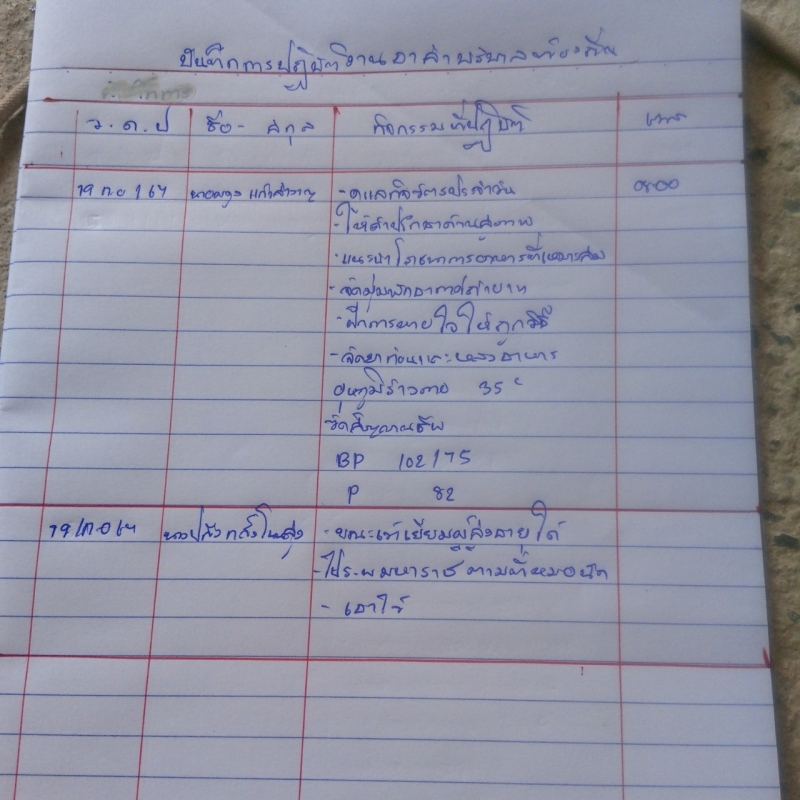 บันทึกการปฏิบัติงานอาสาบริบาลท้องถิ่น
ว.ด.ป ชื่อ - สกุล กิจกรรมที่ปฏิบัติ เวลา
19 ก.ย 64 แก้วสำราญ - ดูแลกิจวัตรประจำวัน 08.00
- ให้คำปรึกษาด้านสุขภาพ
- แนะนำโภชนาการอาหารที่เหมาะสม
- จัด
- ฝึกการหายใจให้ถูกวิธี
- จัดยาก่อนและหลังอาหาร
อุณหภูมิร่างกาย 35 c
วัดสัญญาณชีพ
BP 102/75
P 82
19/ก.ย 64 - ขณะเข้าเยี่ยมผู้สูงอายุได้
- ไปร.พมหาราชตามที่หมอนัด
- เอาใจ